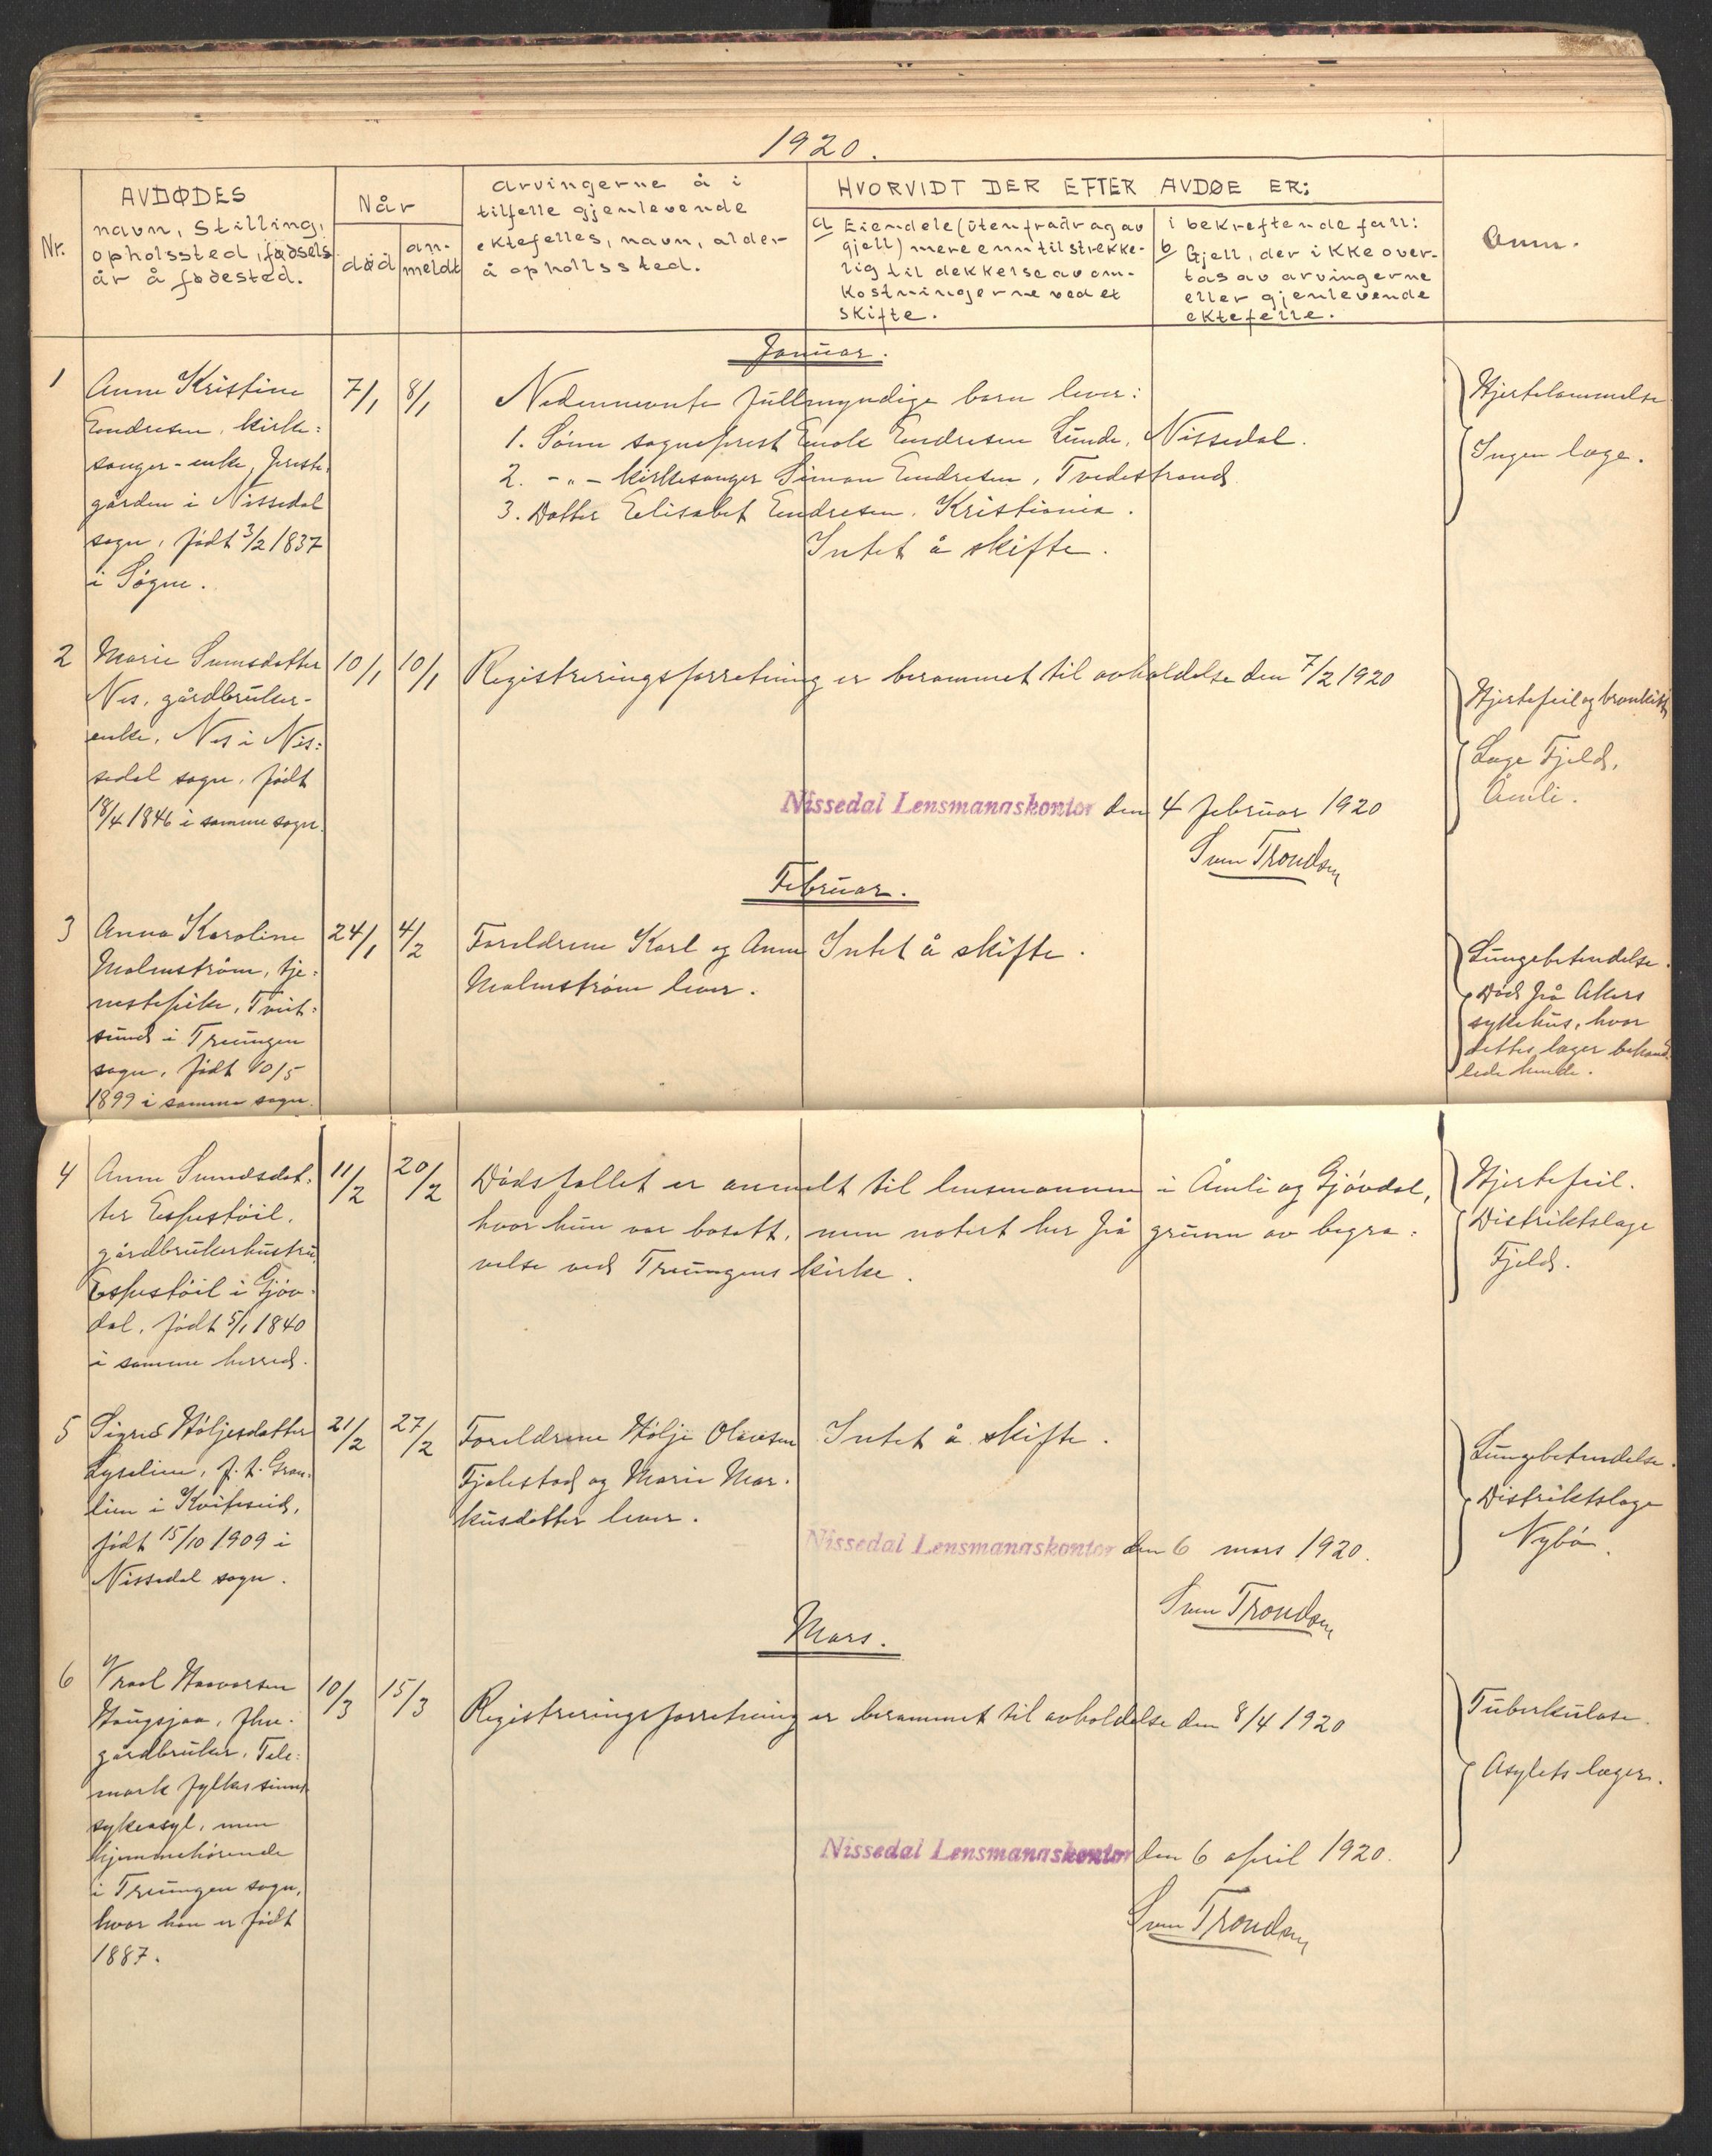 1920.
Nr.
AVDØDES
navn, stilling,
opholssted, fødsels
år å fødested.
Når
død
an-
meldt
arvingerne å i
tilfelle gjenlevende
ektefelles, navn, alder
å opholssted.
HVORVIDT DER EFTER AVDØE ER:
a Eiendele (uten fradrag av
gjell) mere enn tilstrekke-
lig til dekkelse av om-
kostningerne ved et
skifte.
i bekreftende fall:
b Gjell, der ikke over-
tas av arvingerne
eller gjenlevende
ektefelle.
Anm.
Januar.
1
Anne Kristine
Endresen, kirke:
sanger-enke, preste,
gården i Nissedal
sogn, født 3/2 1837
i Søgne.
7/1
8/1
Nedennevnte fullmyndige barn lever:
1. Sønn sogneprest Enok Endresen Lunde, Nissedal.
2. -"- kirkesanger Simon Endresen, Tvedestrand
3. Datter Elisabet Endresen, Kristiania.
Intet å skifte.
Hjertelammelse
Ingen læge.
2
Marie Sveinsdatter
Nes, gårdbruker-
enke, Nes i Nis:
sedal sogn, født
18/4 1846 i samme sogn.
10/1
10/1
Registreringsforretning er berammet til avholdelse den 7/2 1920
Hjertefeil og bronkitt
Læge Fjeld,
Åmli.
Nissedal Lensmannskontor den 4 februar 1920
Sven Trondsen
Februar.
3
Anna Karoline
Malmstrøm, tje:
nestepike, Tveit:
sund i Treungen
sogn, født 10/5
1899 i samme sogn.
24/1
4/2
Foreldrene Karl og Anne
Malmstrøm lever.
Intet å skifte.
Lungebetendelse.
Død på Akers
sykehus, hvor
dettes læger behand:
lede hende.
4
Anne Svendsdat:
ter Espestøil,
gårdbrukerhustru,
Espestøil i Gjøv:
dal, født 5/1 1840
i samme herred.
11/2
20/2
Dødsfallet er anmelt til lensmannen i Åmli og Gjøvdal,
hvor hun var bosatt, men notert her på grunn av begra:
velse ved Treungens kirke.
Hjertefeil.
Distriktslæge
Fjeld.
5
Sigrid Høljesdatter
Lyselien, p. t. Gran:
lien i Kviteseid,
født 15/10 1909 i
Nissedal sogn.
21/2
27/2
Foreldrene Hølje Olavsen
Fjalestad og Marie Mar:
kusdatter lever.
Intet å skifte.
Lungebetendelse.
Distriktslæge
Nybø.
Nissedal Lensmannskontor den 6 mars 1920.
Sven Trondsen
Mars.
6
Vraal Haavorsen
Haugsjaa, fhv.
gårdbruker, Tele:
mark fylkes sinns
sykeasyl, men
hjemmehørende
i Treungen sogn,
hvor han er født
1887.
10/3
15/3
Registreringsforretning er berammet til avholdelse den 8/4 1920
Tuberkulose.
Asylets læger.
Nissedal Lensmannskontor den 6 april 1920.
Sven Trondsen